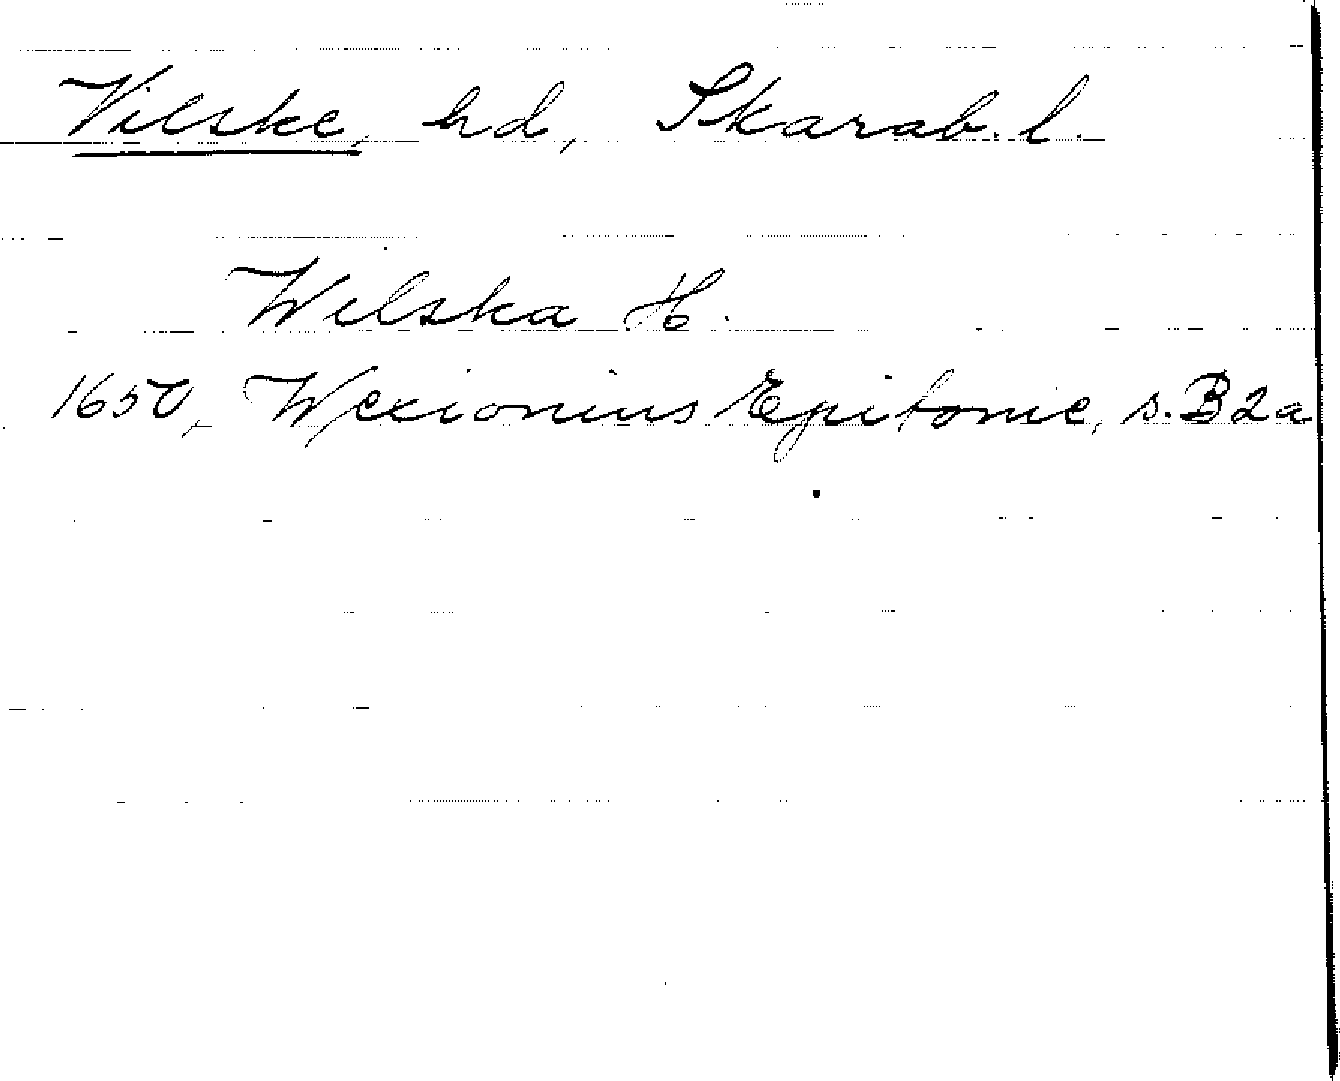 Vilske, hd, Skarab. l.
Wilska H.
1650, Wexionius Epitome, s. B2a